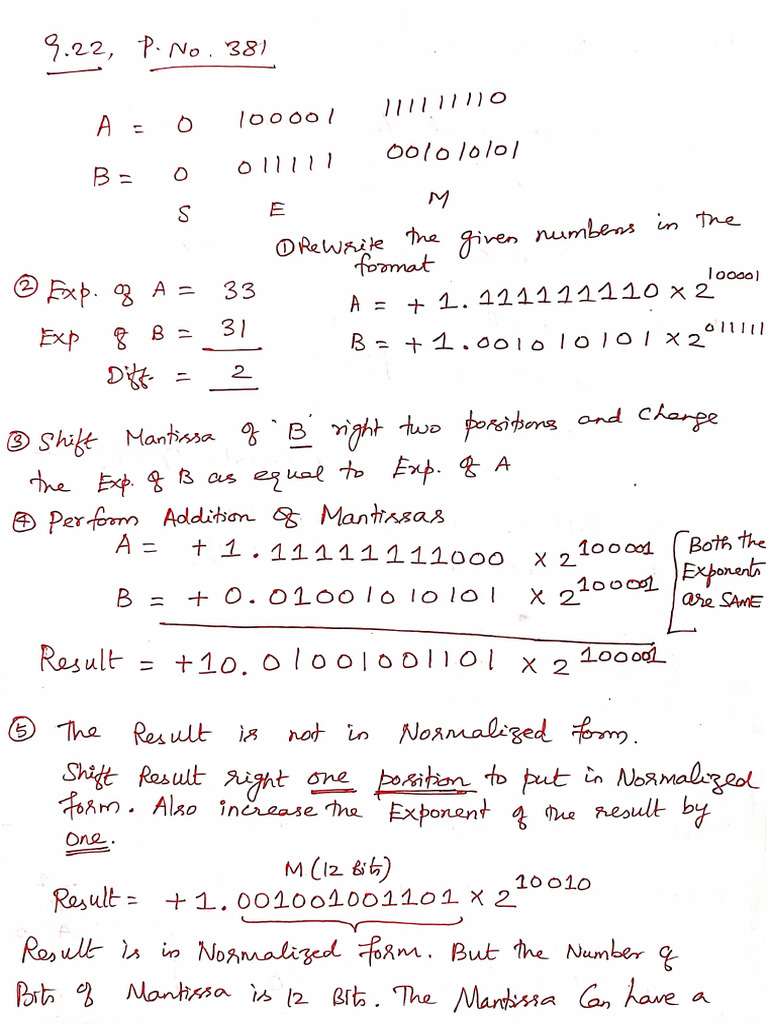 9.22, P. No. 381
A = 0 100001 111111110
B = 0 011111 001010101
S E M
① ReWrite the given numbers in the format
② Exp. of A = 33
Exp of B = 31
Diff. = 2
A = + 1.111111110 × 2^100001
B = + 1.001010101 × 2^011111
③ Shift Mantissa of 'B' right two positions and change
the Exp. of B as equal to Exp. of A
④ Perform Addition of Mantissas
A = + 1.11111111000 × 2^100001
B = + 0.01001010101 × 2^100001
Both the
Exponents
are SAME
Result = +10.01001001101 × 2^100001
⑤ The Result is not in Normalized form.
Shift Result right one position to put in Normalized
form. Also increase the Exponent of the result by
one.
M (12 Bits)
Result = + 1.001001001101 × 2^10010
Result is in Normalized Form. But the Number of
Bits of Mantissa is 12 Bits. The Mantissa Can have a